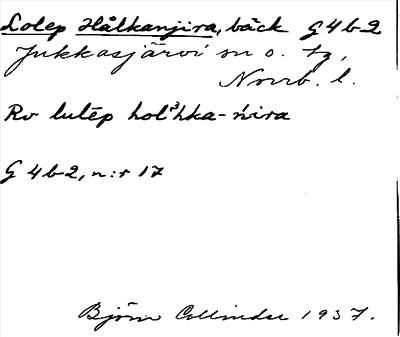 Lolep Hålkanjira, bäck G4b2
Jukkasjärvi sn o. tg,
Norrb. l.
Rv lulēp hol³hka-ńira
G 4b2, n:r 17
Björn Collinder 1937.